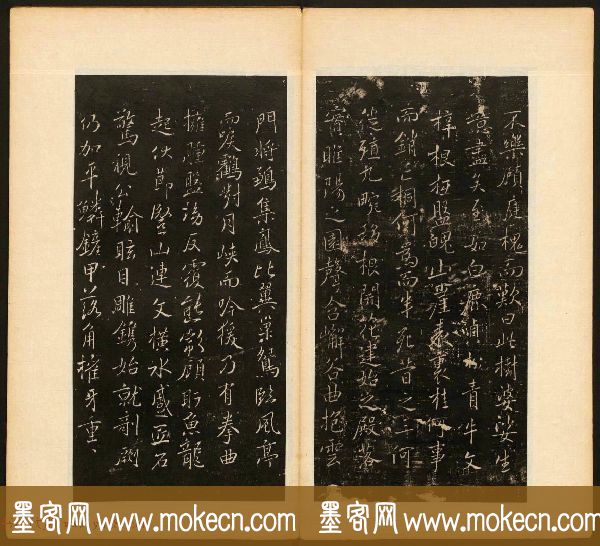 不樂顧庭槐而歎曰此樹婆娑生
意盡矣至如白鹿貞松青牛文
梓根柢盤魄山崖表裏桂何事
而銷亡桐何為而半死昔之三河
徙殖九畹移根開花建始之殿落
實睢陽之園聲含嶰谷曲抱雲
門將鵷集鳳比翼巢鴛臨風亭
而唳鶴對月峽而吟猨乃有拳曲
擁腫盤坳反覆熊彪顧盻魚龍
起伏節豎山連文橫水蹙匠石
驚視公輸眩目雕鐫始就剞劂
仍加平鱗鏟甲落角摧牙重〻
墨客网 www.mokecn.com
墨客网 www.mokecn.com